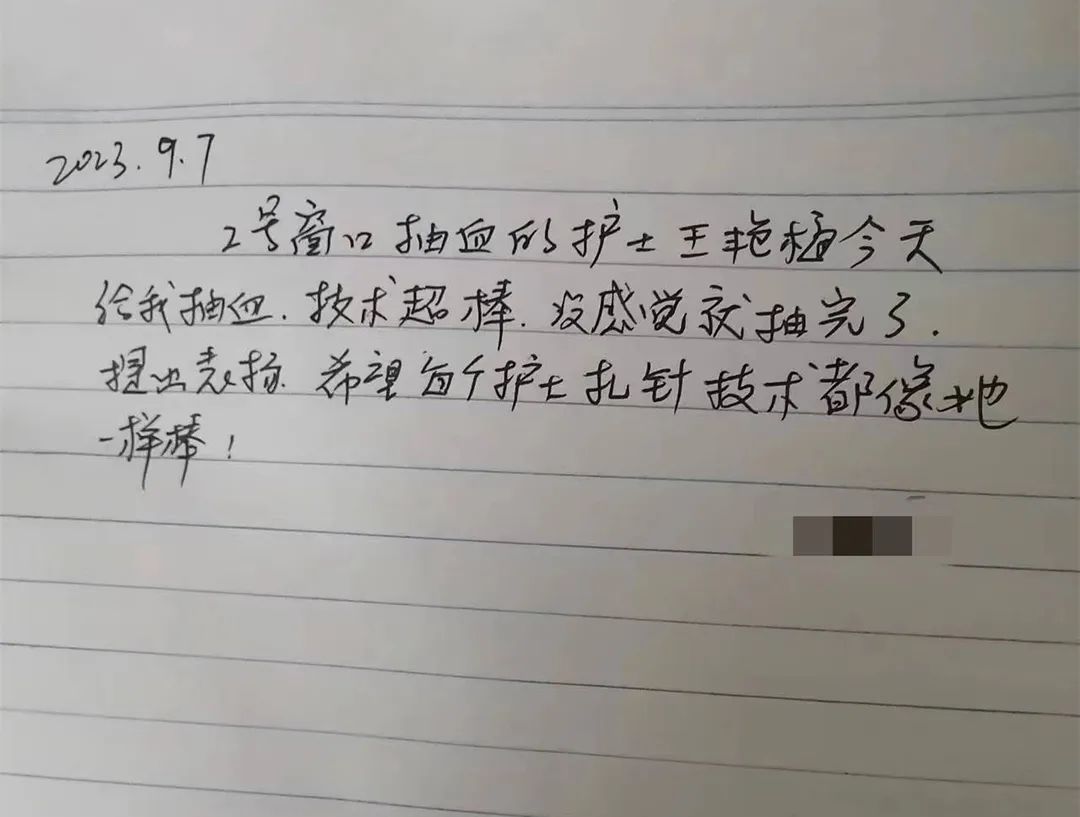 2023.9.7
2号窗口抽血的护士王艳植今天
给我抽血.技术超棒.没感觉就抽完了.
提出表扬.希望每个护士扎针技术都像她
一样棒!